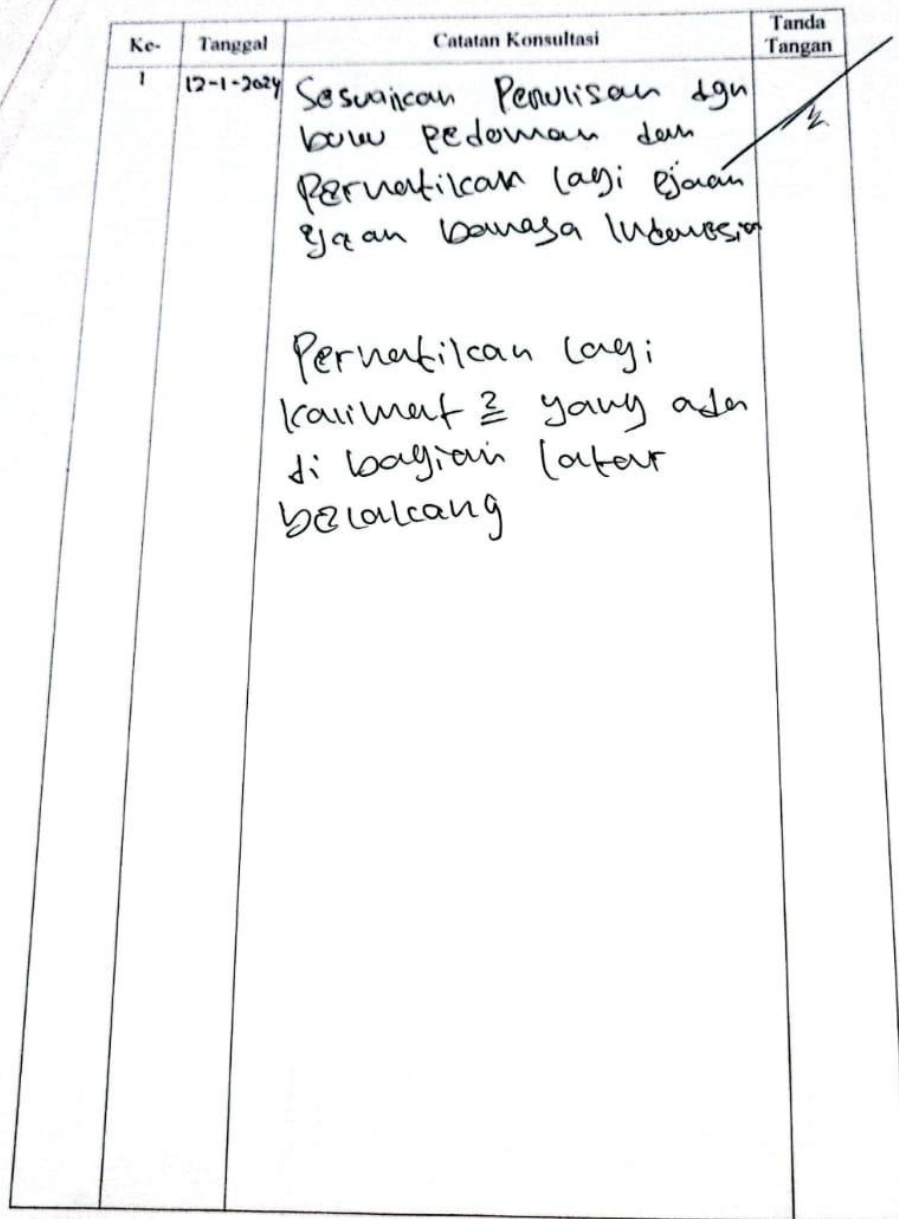 Ke- Tanggal Catatan Konsultasi Tanda Tangan
1 12-1-2024 Sesuaikan Penulisan dgn
buku pedoman dan
Perhatikan lagi ejaan
ejaan bahasa Indonesia
Perhatikan lagi
kalimat 2 yang ada
di bagian latar
belakang